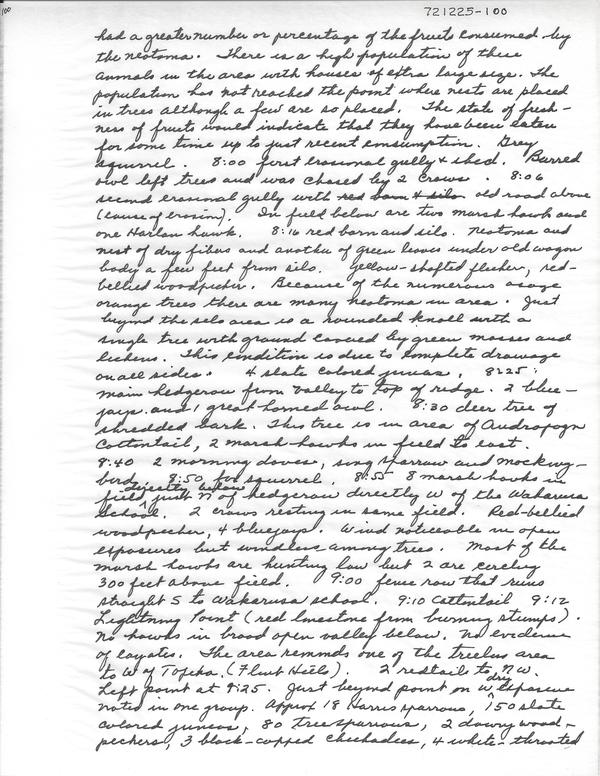 100
721225-100
had a greater number or percentage of the fruits consumed by
the neotoma. There is a high population of these
animals in the area with houses of extra large size. The
population has not reached the point where nests are placed
in trees although a few are so placed. The state of fresh-
ness of fruits would indicate that they have been eaten
for some time up to just recent consumption. Grey
squirrel. 8:00 first erosional gully & shed. Barred
owl left trees and was chased by 2 crows. 8:06
second erosional gully with red barn & silo old road above
(cause of erosion). In field below are two marsh hawk and
one Harlan hawk. 8:16 red barn and silo. Neotoma and
nest of dry fibers and another of green leaves under old wagon
body a few feet from silo. Yellow-shafted flicker, red-
bellied woodpecker. Because of the numerous osage
orange trees there are many neotoma in area. Just
beyond the silo area is a rounded knoll with a
single tree with ground covered by green mosses and
lichens. This condition is due to complete drainage
on all sides. 4 slate colored juncos, 8:25:
main hedgerow from valley to top of ridge. 2 blue-
jays and 1 great horned owl. 8:30 deer tree of
shredded bark. This tree is in area of Andropogn
Cottontail, 2 marsh-hawks in field to east.
8:40 2 morning doves, song sparrow and mocking-
bird. 8:50 fox squirrel, 8:55 8 marsh hawks in
directly below
field just N of hedgerow directly W of the Wakarusa
School. 2 crows resting in same field. Red-bellied
woodpecker, 4 bluejays. Wind noticeable in open
exposures but windless among trees. Most of the
marsh hawks are hunting low but 2 are circling
300 feet above field. 9:00 fence row that runs
straight S to Wakarusa school. 9:10 Cottontail 9:12
Lightning Point (red limestone from burning stumps).
No hawks in broad open valley below. No evidence
of coyotes. The area reminds one of the treeless area
to W of Topeka. (Flint Hills). 2 redtails to N.W.
Left point at 9:25. Just beyond point on W dry exposure
noted in one group. Approx 18 Harris sparrows, 150 slate
colored juncos, 80 treesparrows, 2 downy wood-
peckers, 3 black-capped chickadees, 4 white-throated